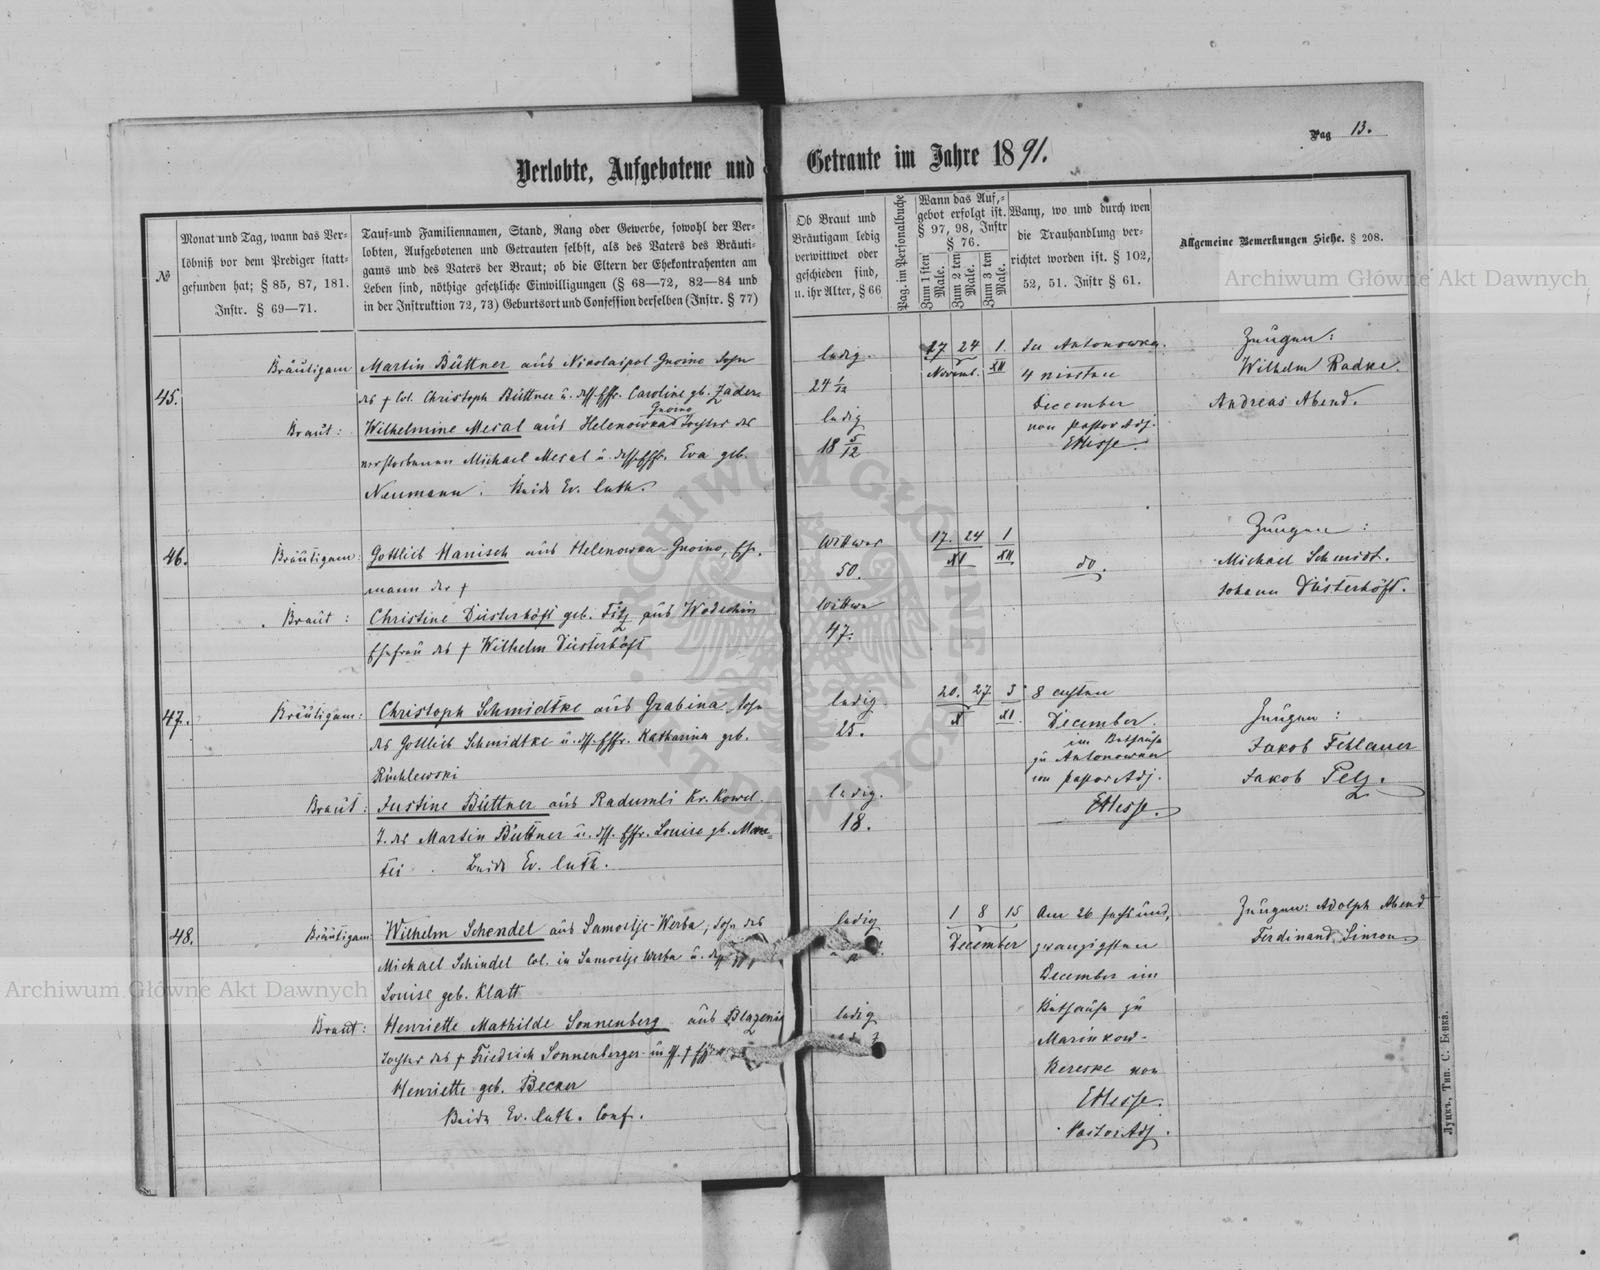 Pag 13.
Verlobte, Aufgebotene und Getraute im Jahre 1891.
№
Monat und Tag, wann das Ver-
löbniß vor dem Prediger statt-
gefunden hat; § 85, 87, 181.
Instr. § 69—71.
Tauf- und Familiennamen, Stand, Rang oder Gewerbe, sowohl der Ver-
lobten, Aufgebotenen und Getrauten selbst, als des Vaters des Bräuti-
gams und des Vaters der Braut; ob die Eltern der Ehekontrahenten am
Leben sind, nöthige gesetzliche Einwilligungen (§ 68—72, 82—84 und
in der Instruktion 72, 73) Geburtsort und Confession derselben (Instr. § 77)
Ob Braut und
Bräutigam ledig
verwittwet oder
geschieden sind,
u. ihr Alter, § 66
Pag. im Personalbuche
Wann das Auf-
gebot erfolgt ist.
§ 97, 98, Instr
§ 76.
Zum 1 sten Male.
Zum 2 ten Male.
Zum 3 ten Male.
Wann, wo und durch wen
die Trauhandlung ver-
richtet worden ist. § 102,
52, 51. Instr § 61.
Allgemeine Bemerkungen Siehe. § 208.
45.
Bräutigam
Martin Büttner aus Nikolaipol-Gnoino Sohn
des † Col. Christoph Büttner u. dess. Ehfr. Caroline gb.
Braut:
Gnoino
Wilhelmine Mesal aus Helenowka Tochter des
verstorbenen Michael Mesal u. dess. Ehfr. Eva geb.
Neumann. Beide Ev. luth.
ledig.
24 1/12
ledig
18 5/12
17 24 1.
Novemb. XII
zu Antonowka
4 vierten
December
von Pastor Adj.
EHesse.
Zeugen:
Wilhelm Radke.
Andreas Abend.
46.
Bräutigam:
Gottlieb Manisch aus Helenowka-Gnoino, Eh-
mann der †
Braut:
Christine Düsterhöft geb. Fitz aus Wodzchin
Ehefrau des † Wilhelm Düsterhöft
Wittwer
50.
Wittwe
47.
17. 24 1
XI XII
do.
Zeugen:
Michael Schmidt.
Johann Düsterhöft.
47.
Bräutigam:
Christoph Schmidtke aus Grabina, Sohn
des Gottlieb Schmidtke u. dss. Ehfr. Katharina geb.
Rüchlewski
Braut:
Justine Büttner aus Radumli Kr. Kowel.
T. des Martin Büttner u. dss. Ehfr. Louise gb. Man-
tei. Beide Ev. luth.
ledig
25.
ledig.
18.
20. 27 3
X XI.
8 achten
December.
im Bethause
zu Antonowka
von Pastor Adj.
EHesse.
Zeugen:
Jakob Fehlauer
Jakob Pelz.
48.
Bräutigam
Wilhelm Schendel aus Samostje-Werba, Sohn des
Michael Schindel Col. in Samostje Werba u.
Louise geb. Klatt
Braut:
Henriette Mathilde Sonnenberg aus
Tochter des † Friedrich Sonnenberger u.
Henriette geb. Becker
Beide Ev. luth. Conf.
ledig
ledig
1 8 15
December
Am 26 sechsund-
zwanzigsten
December im
Bethause zu
Marinkow-
Bereske von
EHesse.
Pastor Adj.
Zeugen: Adolph Abend
Ferdinand Simon
Луцкъ, Тип. С. Бенка.
Archiwum Główne Akt Dawnych
Archiwum Główne Akt Dawnych
ARCHIWUM GŁÓWNE AKT DAWNYCH